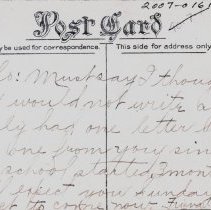 2007-0161
Post Card
y be used for correspondence. This side for address only
lo: Must say I thoug
would not write a
ly had one letter
one from you sin
school started, 3 mont
expect you Sunday
to come now